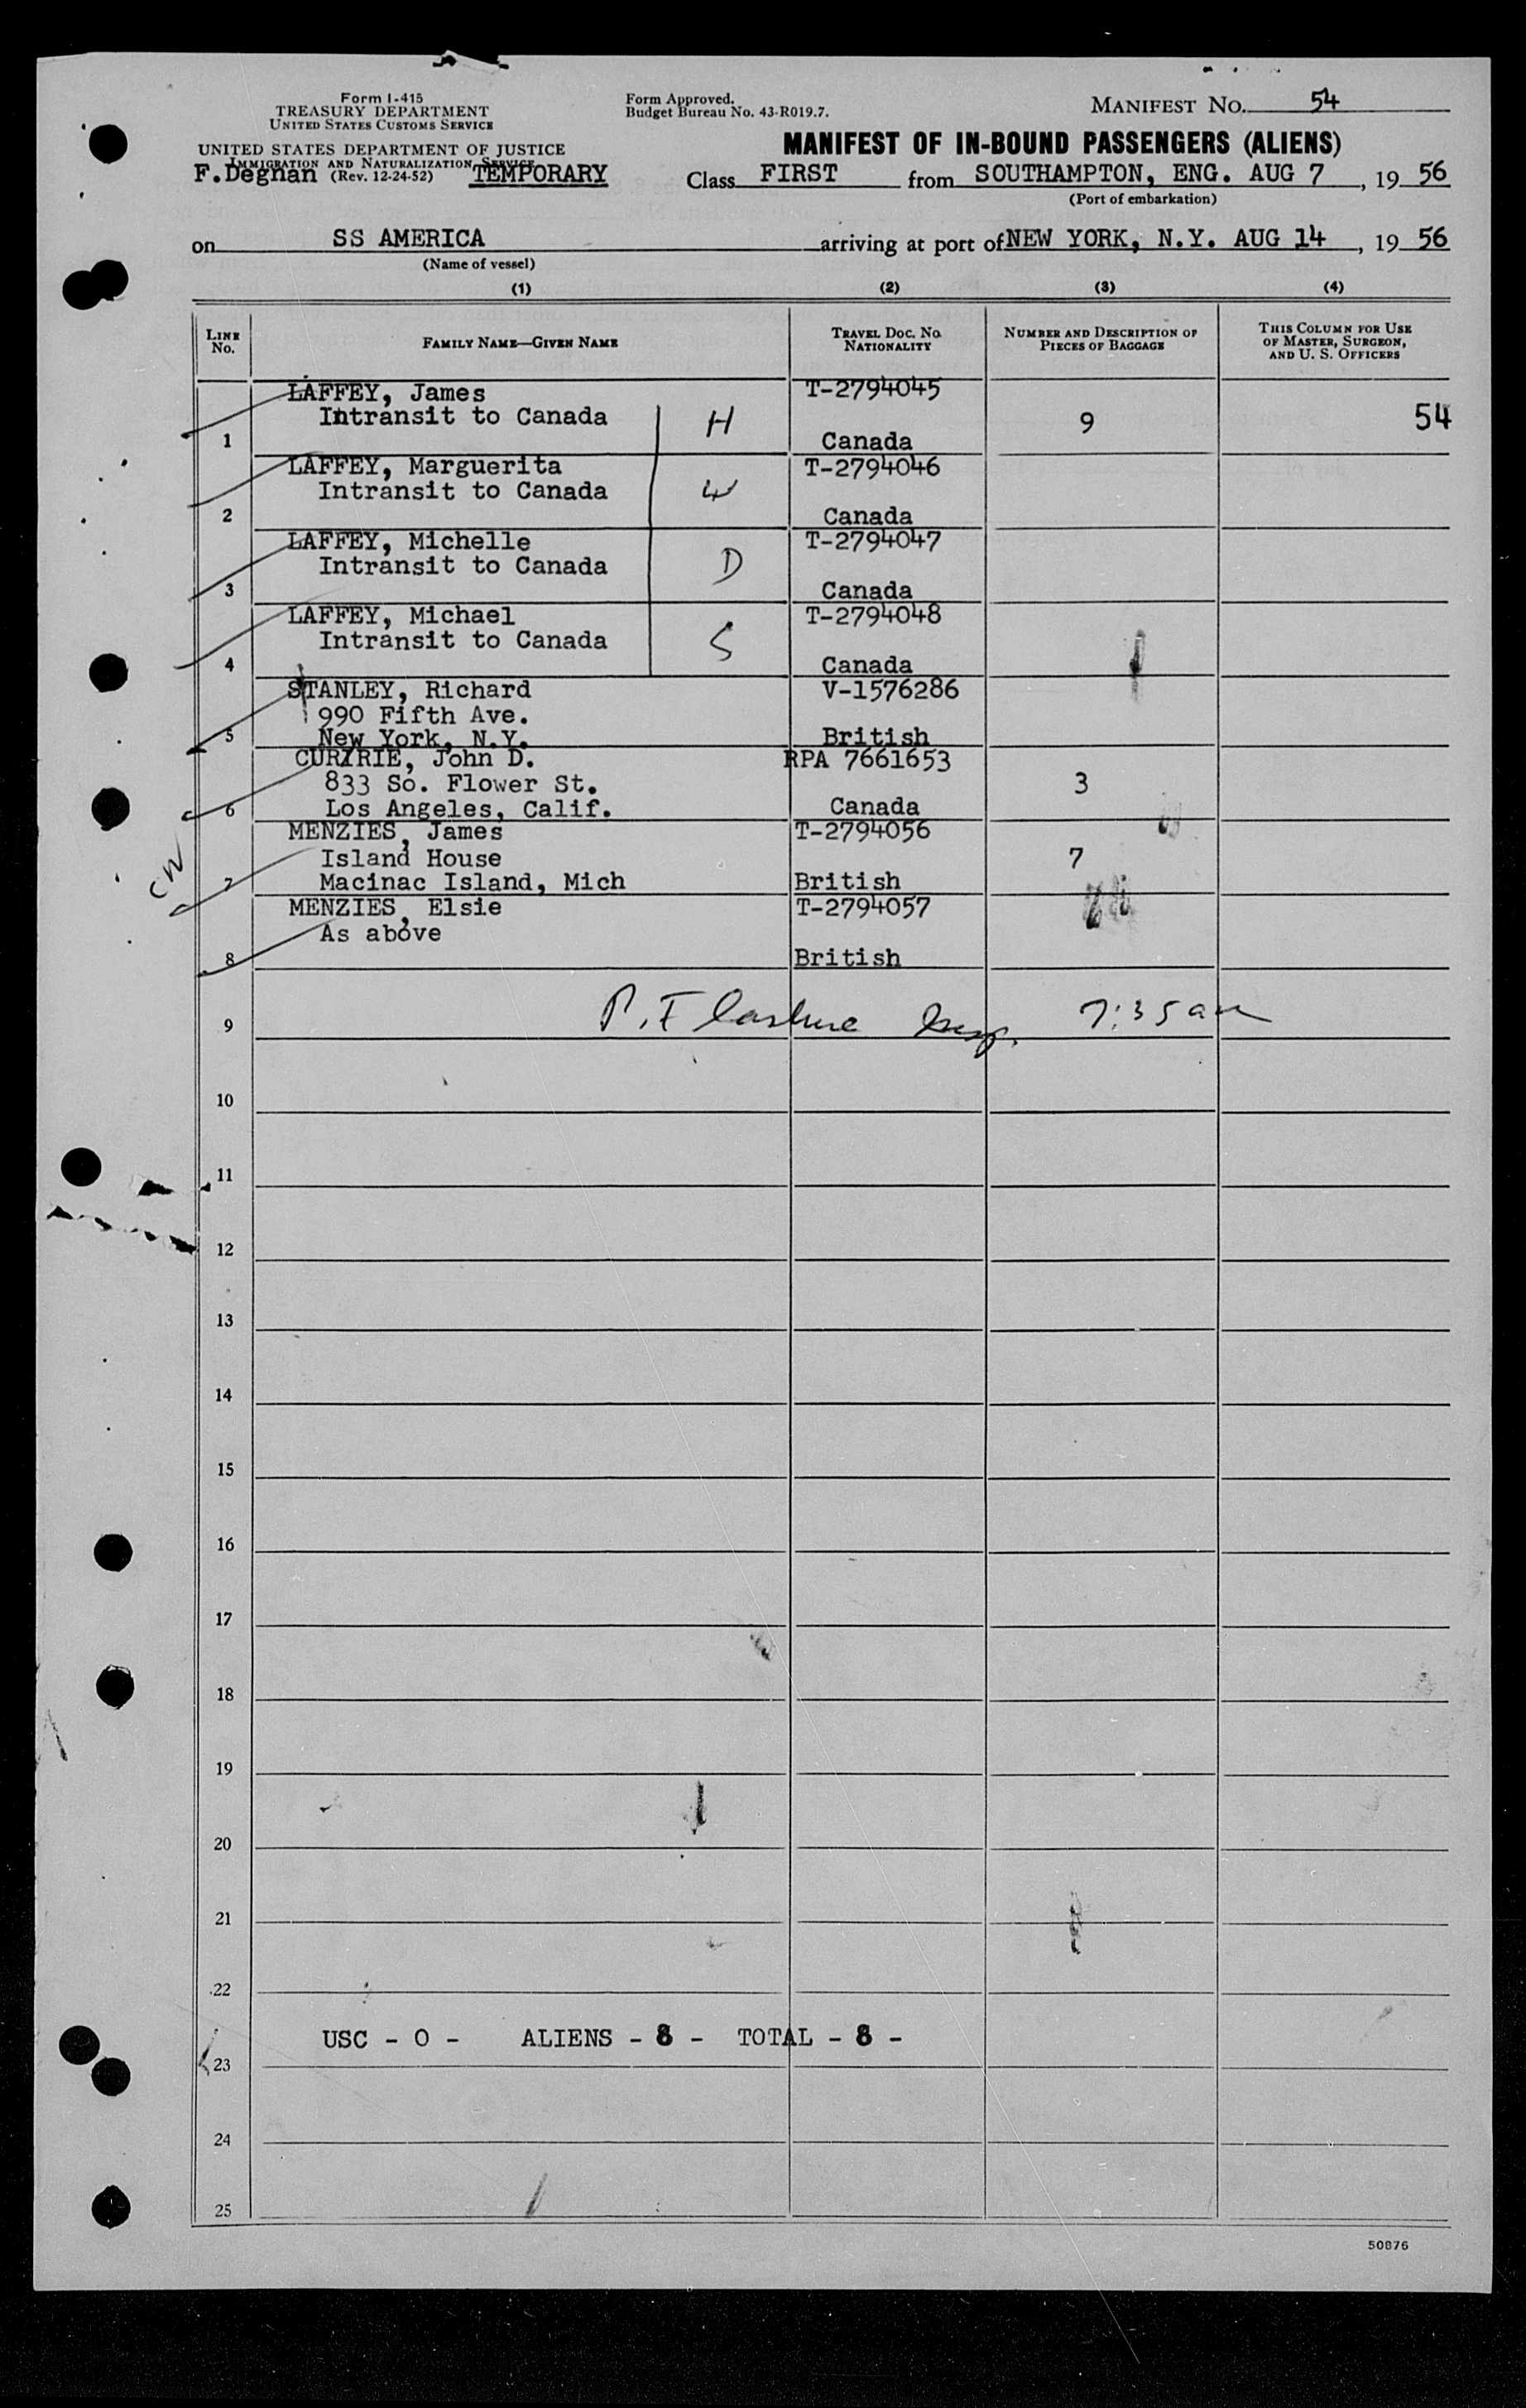 Form I-415
TREASURY DEPARTMENT
UNITED STATES CUSTOMS SERVICE
UNITED STATES DEPARTMENT OF JUSTICE
IMMIGRATION AND NATURALIZATION SERVICE
F. Degnan (Rev. 12-24-52) TEMPORARY
Form Approved.
Budget Bureau No. 43-R019.7.
MANIFEST NO. 54
MANIFEST OF IN-BOUND PASSENGERS (ALIENS)
Class FIRST from SOUTHAMPTON, ENG. AUG 7, 19 56
(Port of embarkation)
on SS AMERICA arriving at port of NEW YORK, N.Y. AUG 14, 19 56
(Name of vessel)
(1) (2) (3) (4)
LINE No. FAMILY NAME—GIVEN NAME TRAVEL DOC. NO. NATIONALITY NUMBER AND DESCRIPTION OF PIECES OF BAGGAGE THIS COLUMN FOR USE OF MASTER, SURGEON, AND U. S. OFFICERS
LAFFEY, James T-2794045
Intransit to Canada H 9 54
1 Canada
LAFFEY, Marguerita T-2794046
Intransit to Canada W
2 Canada
LAFFEY, Michelle T-2794047
Intransit to Canada D
3 Canada
LAFFEY, Michael T-2794048
Intransit to Canada S
4 Canada
STANLEY, Richard V-1576286
990 Fifth Ave.
5 New York, N.Y. British
CURRIE, John D. RPA 7661653
833 So. Flower St. 3
6 Los Angeles, Calif. Canada
MENZIES, James T-2794056
Island House 7
CW 7 Macinac Island, Mich British
MENZIES, Elsie T-2794057
As above
8 British
9 7:35 am
10
11
12
13
14
15
16
17
18
19
20
21
22
USC - 0 - ALIENS - 8 - TOTAL - 8 -
23
24
25
50876